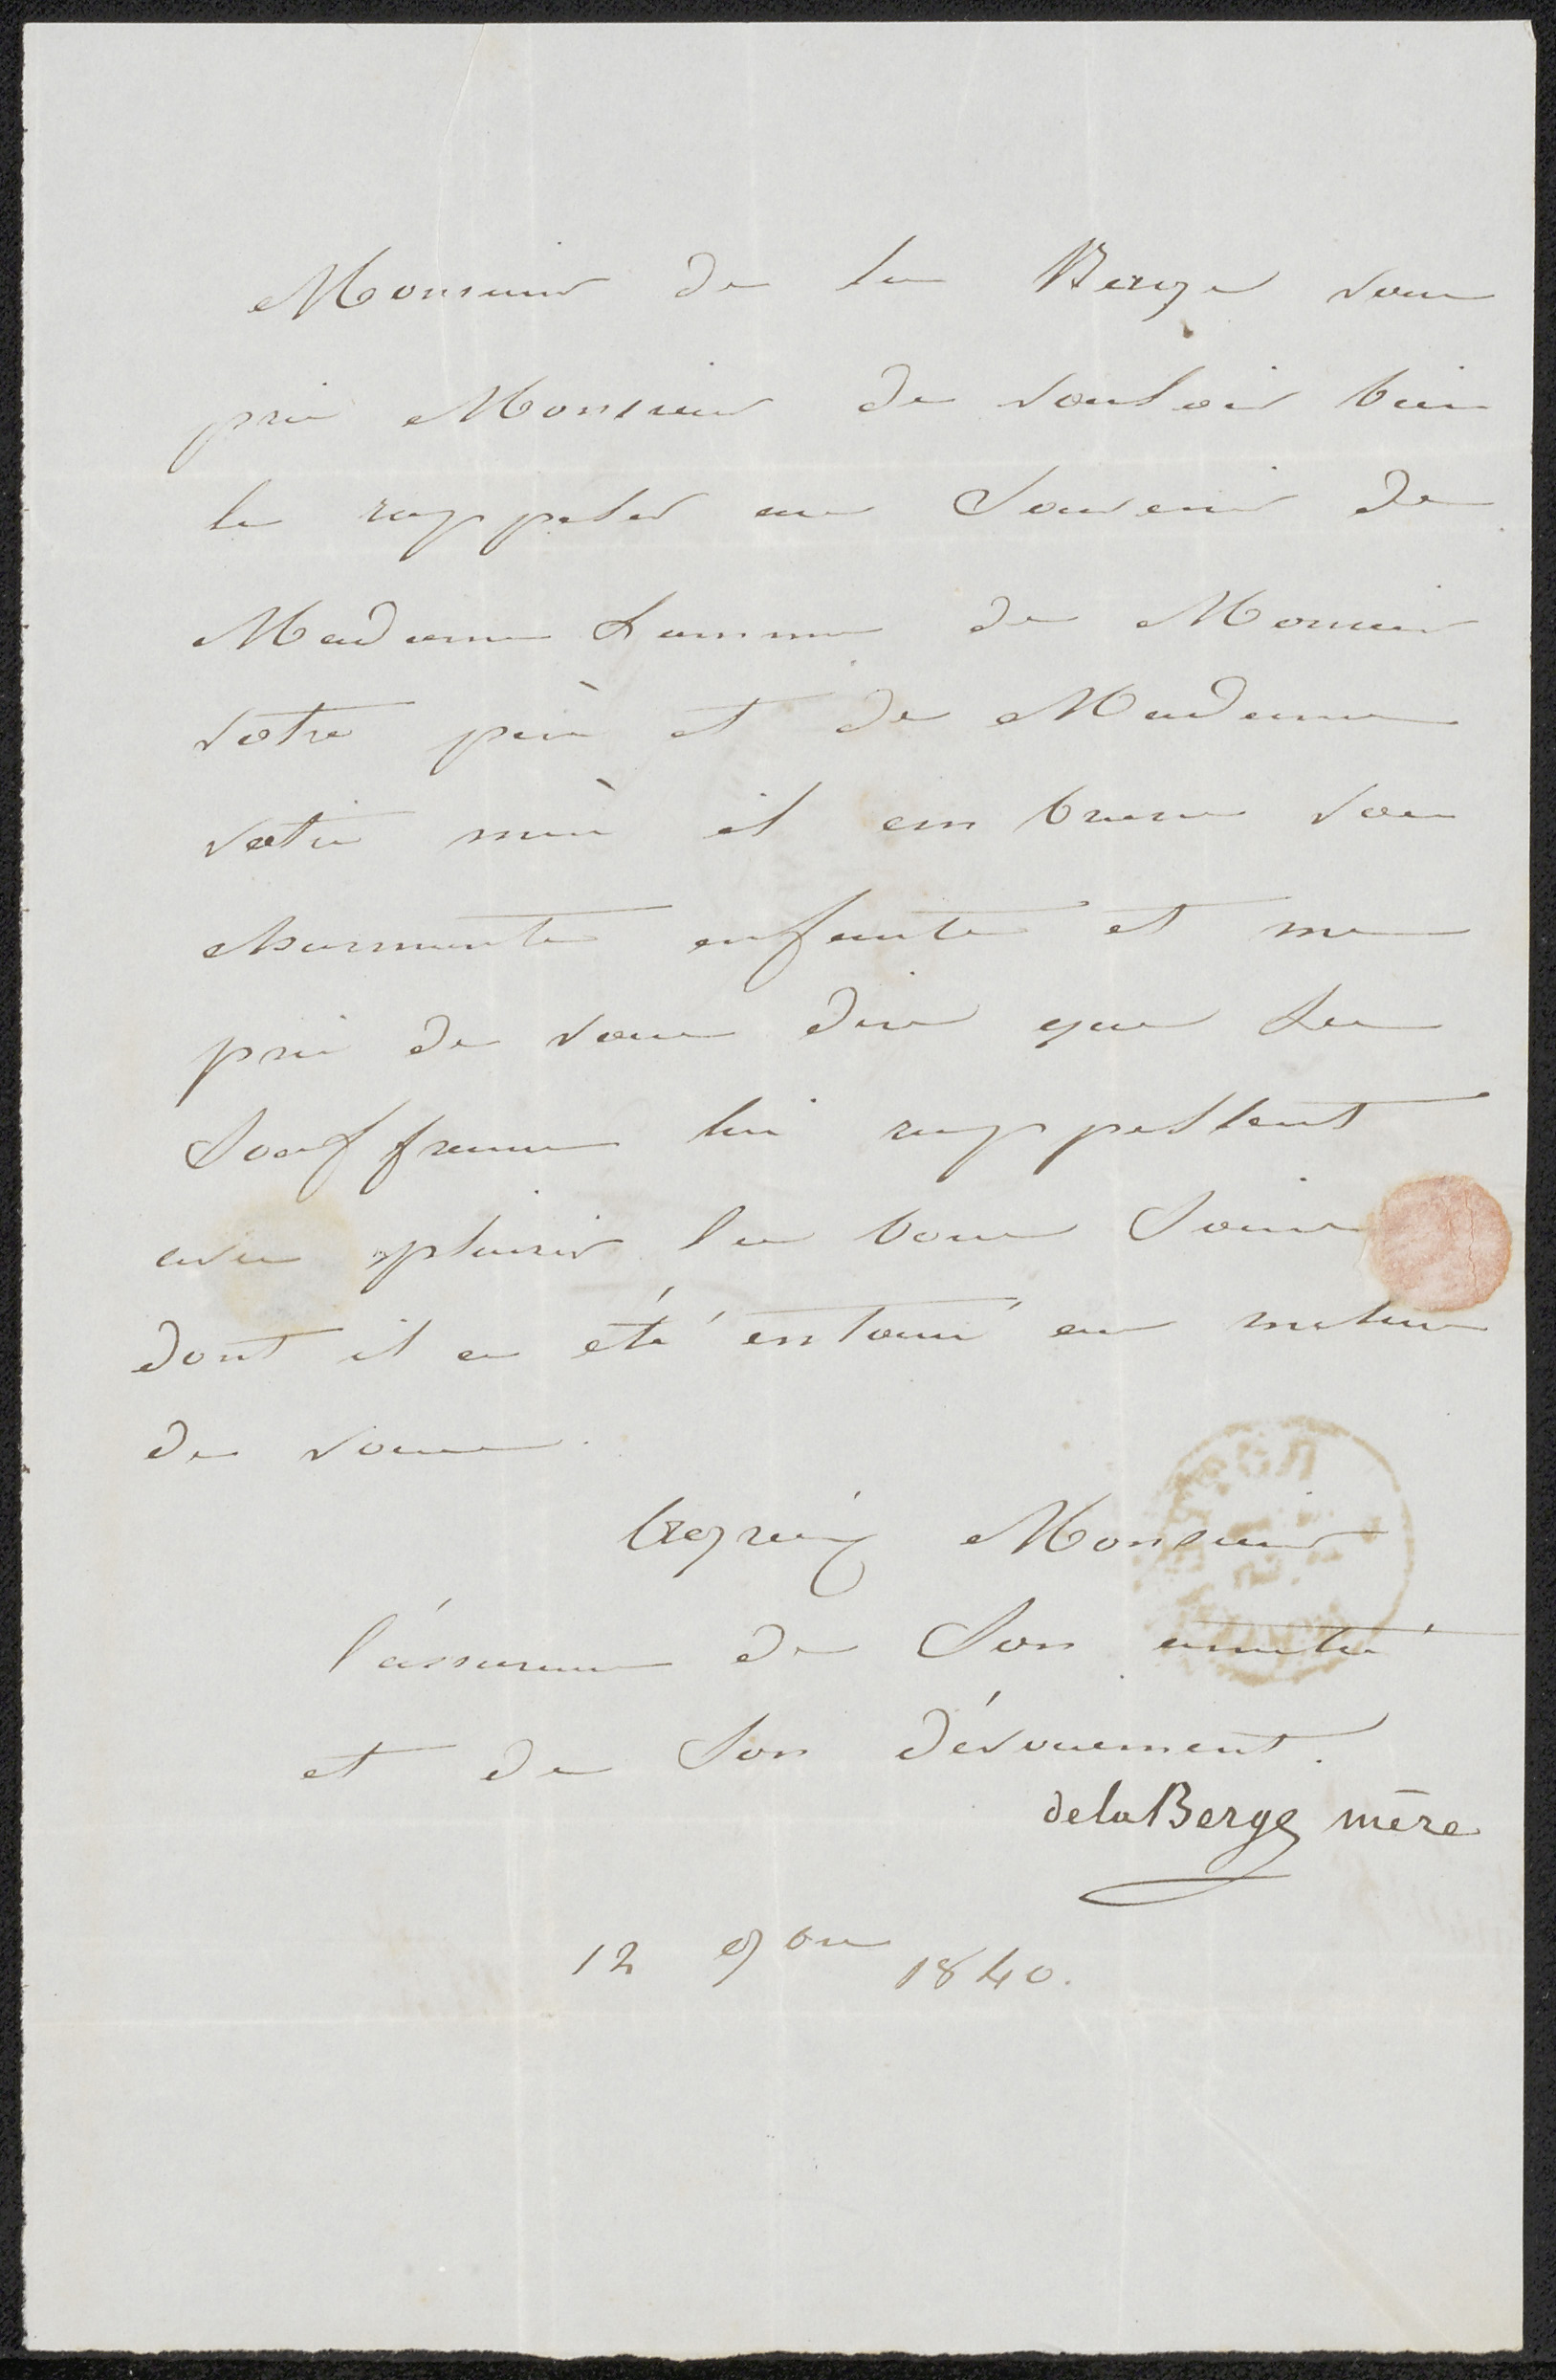 Monsieur de la Berge vous
prie Monsieur de vouloir bien
le rappeler au Souvenir de
Madame Lamme de Monsieur
votre père et de Madame
votre mère il embrasse vos
charmants enfants et me
prie de vous dire que Ses
Souffrances lui rappellent
avec plaisir les bons Soins
dont il a été entouré au milieu
de vous.
Agréez Monsieur
l'assurance de Son amitié
et de Son dévouement.
de la Berge mère
12 9bre 1840.